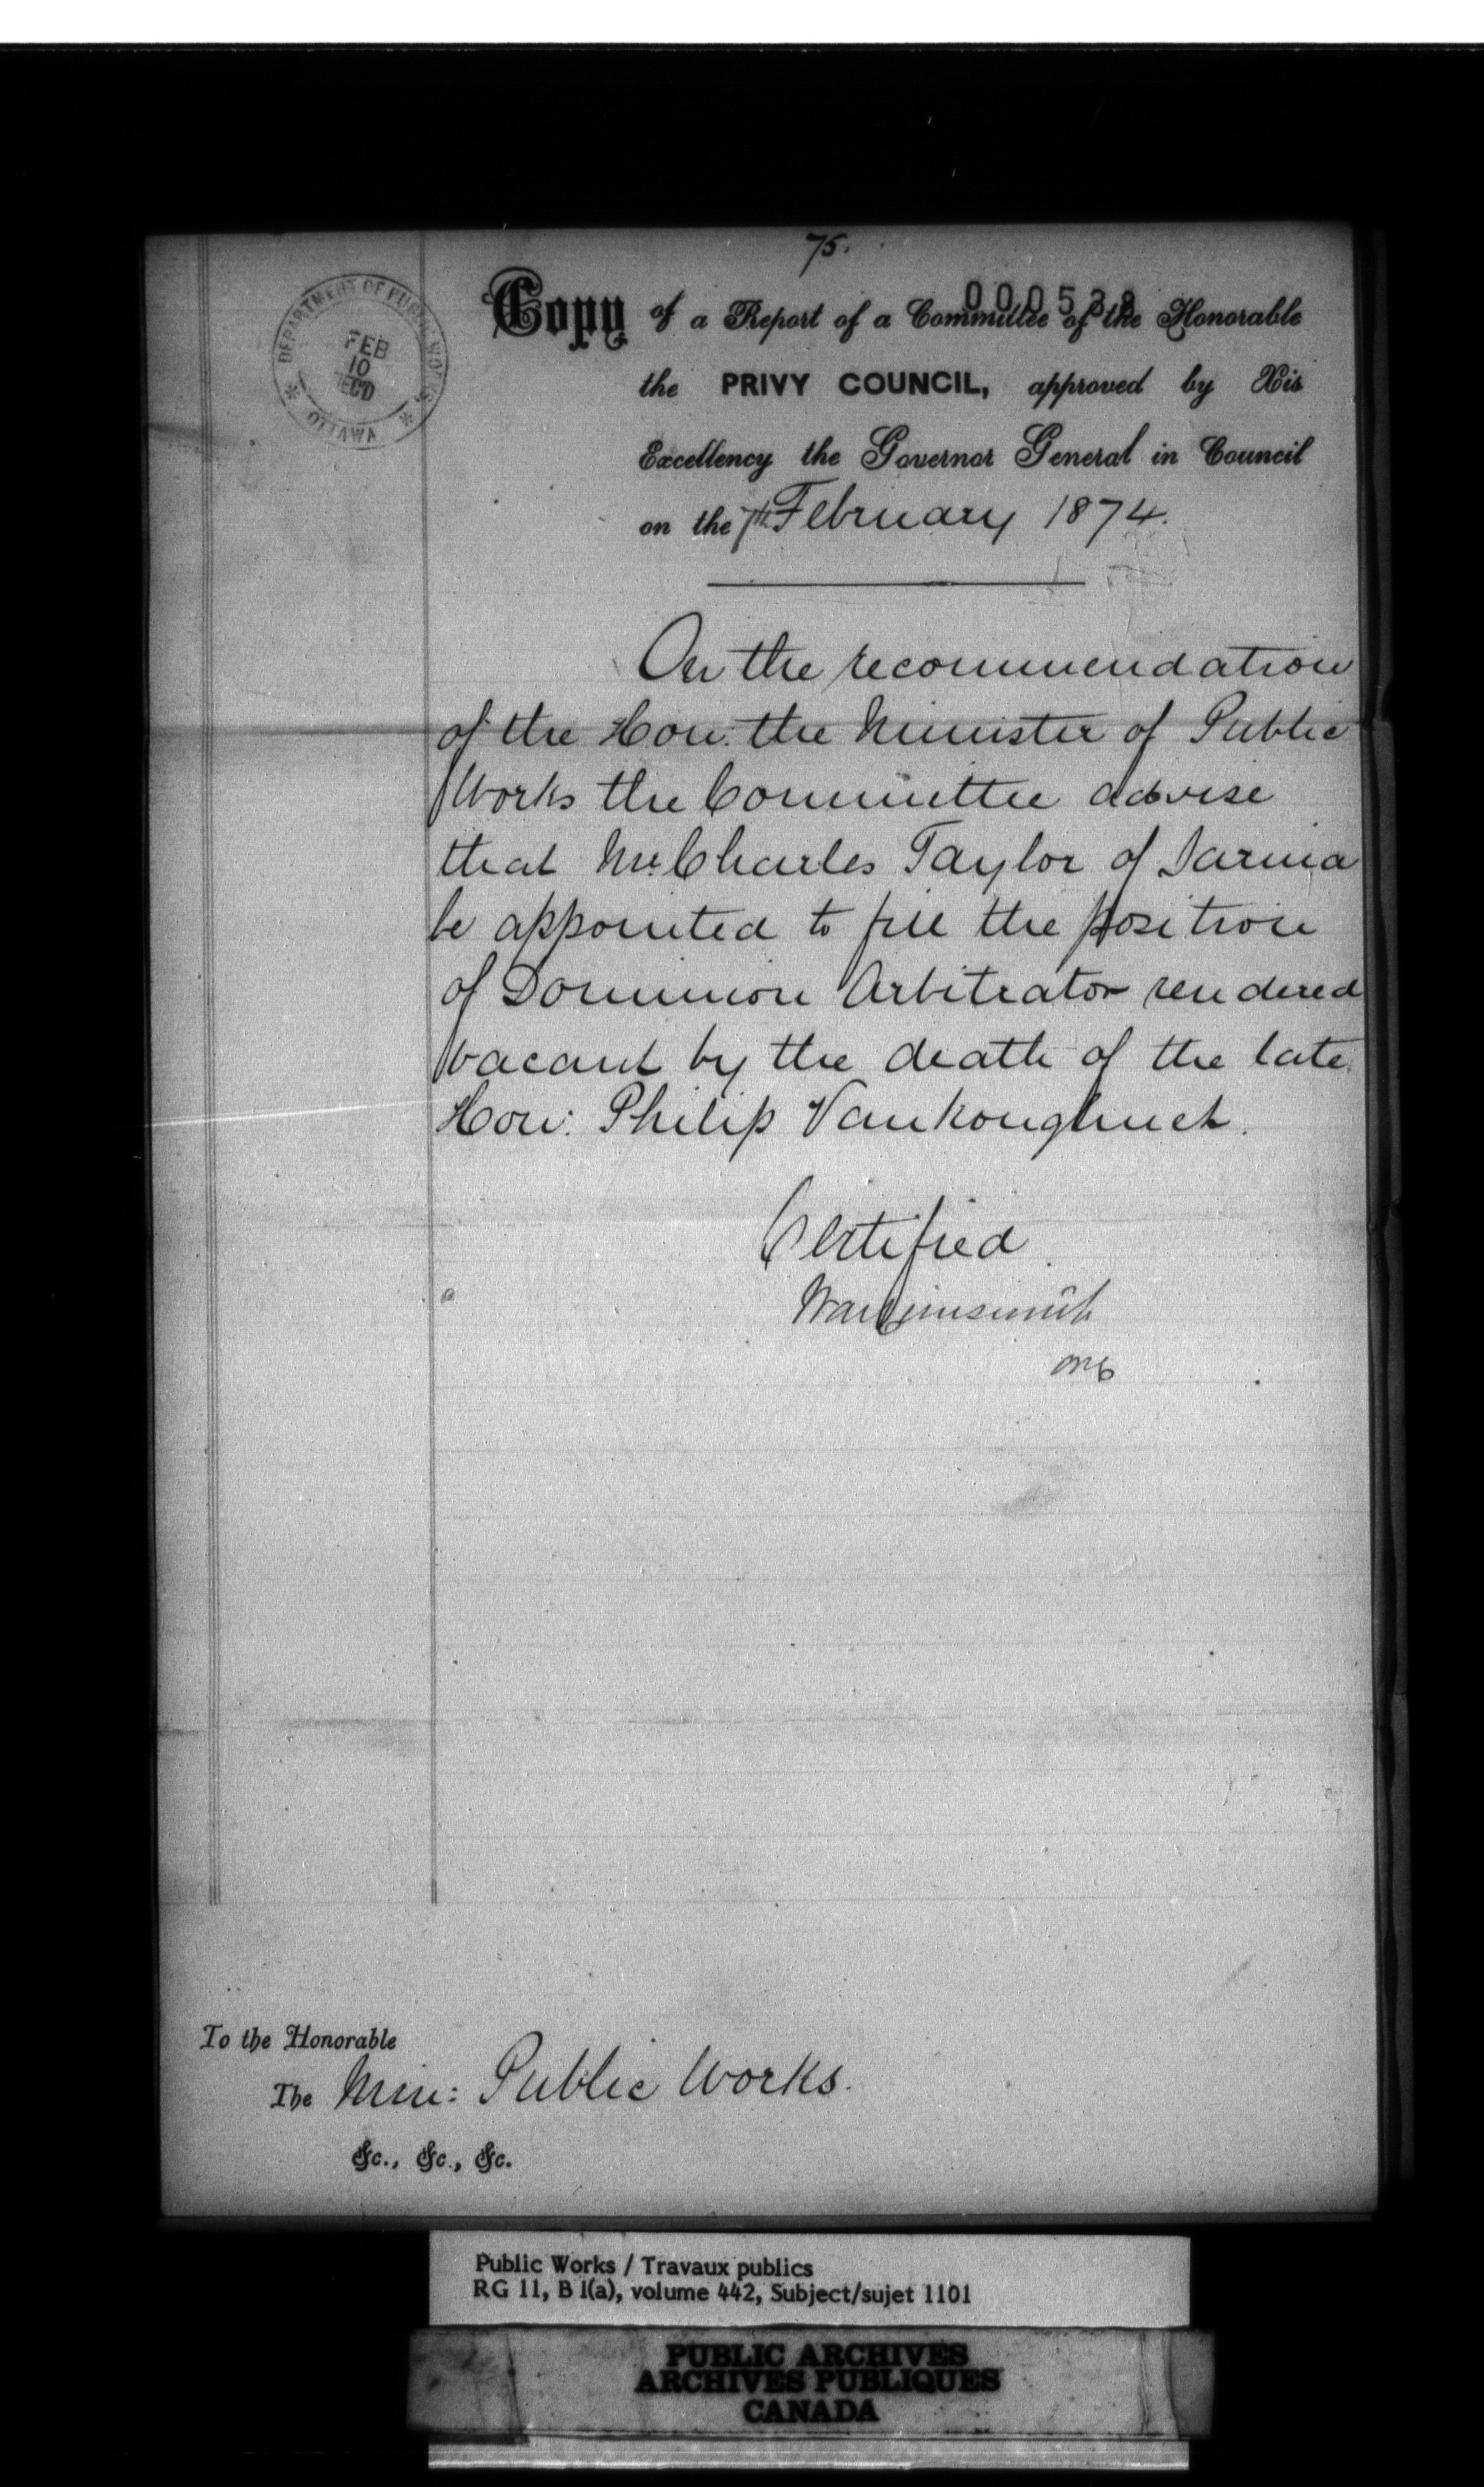 75.
DEPARTMENT OF PUBLIC WORKS
FEB
10
REC'D
OTTAWA
Copy of a Report of a Committee of the Honorable
the PRIVY COUNCIL, approved by His
Excellency the Governor General in Council
on the 7th February 1874.
On the recommendation
of the Hon: the Minister of Public
Works the Committee advise
that Mr. Charles Taylor of Sarnia
be appointed to fill the position
of Dominion Arbitrator rendered
vacant by the death of the late
Hon: Philip Vankoughnet.
Certified
To the Honorable
The Min: Public Works.
&c., &c., &c.
Public Works / Travaux publics
RG 11, B 1(a), volume 442, Subject/sujet 1101
PUBLIC ARCHIVES
ARCHIVES PUBLIQUES
CANADA